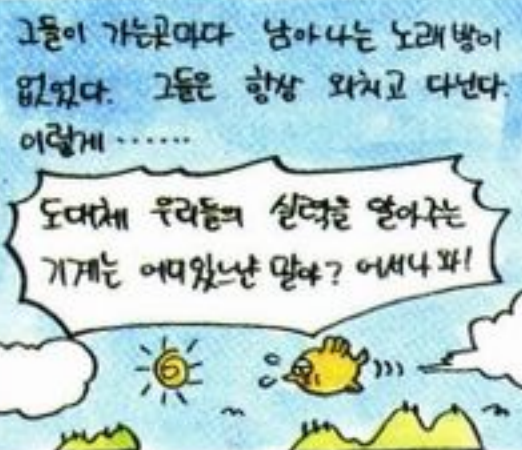 그들이 가는곳마다 남아나는 노래방이
없었다. 그들은 항상 외치고 다닌다.
이렇게 ......
도대체 우리들의 실력을 알아주는
기계는 어디있느냔 말야? 어서나와!